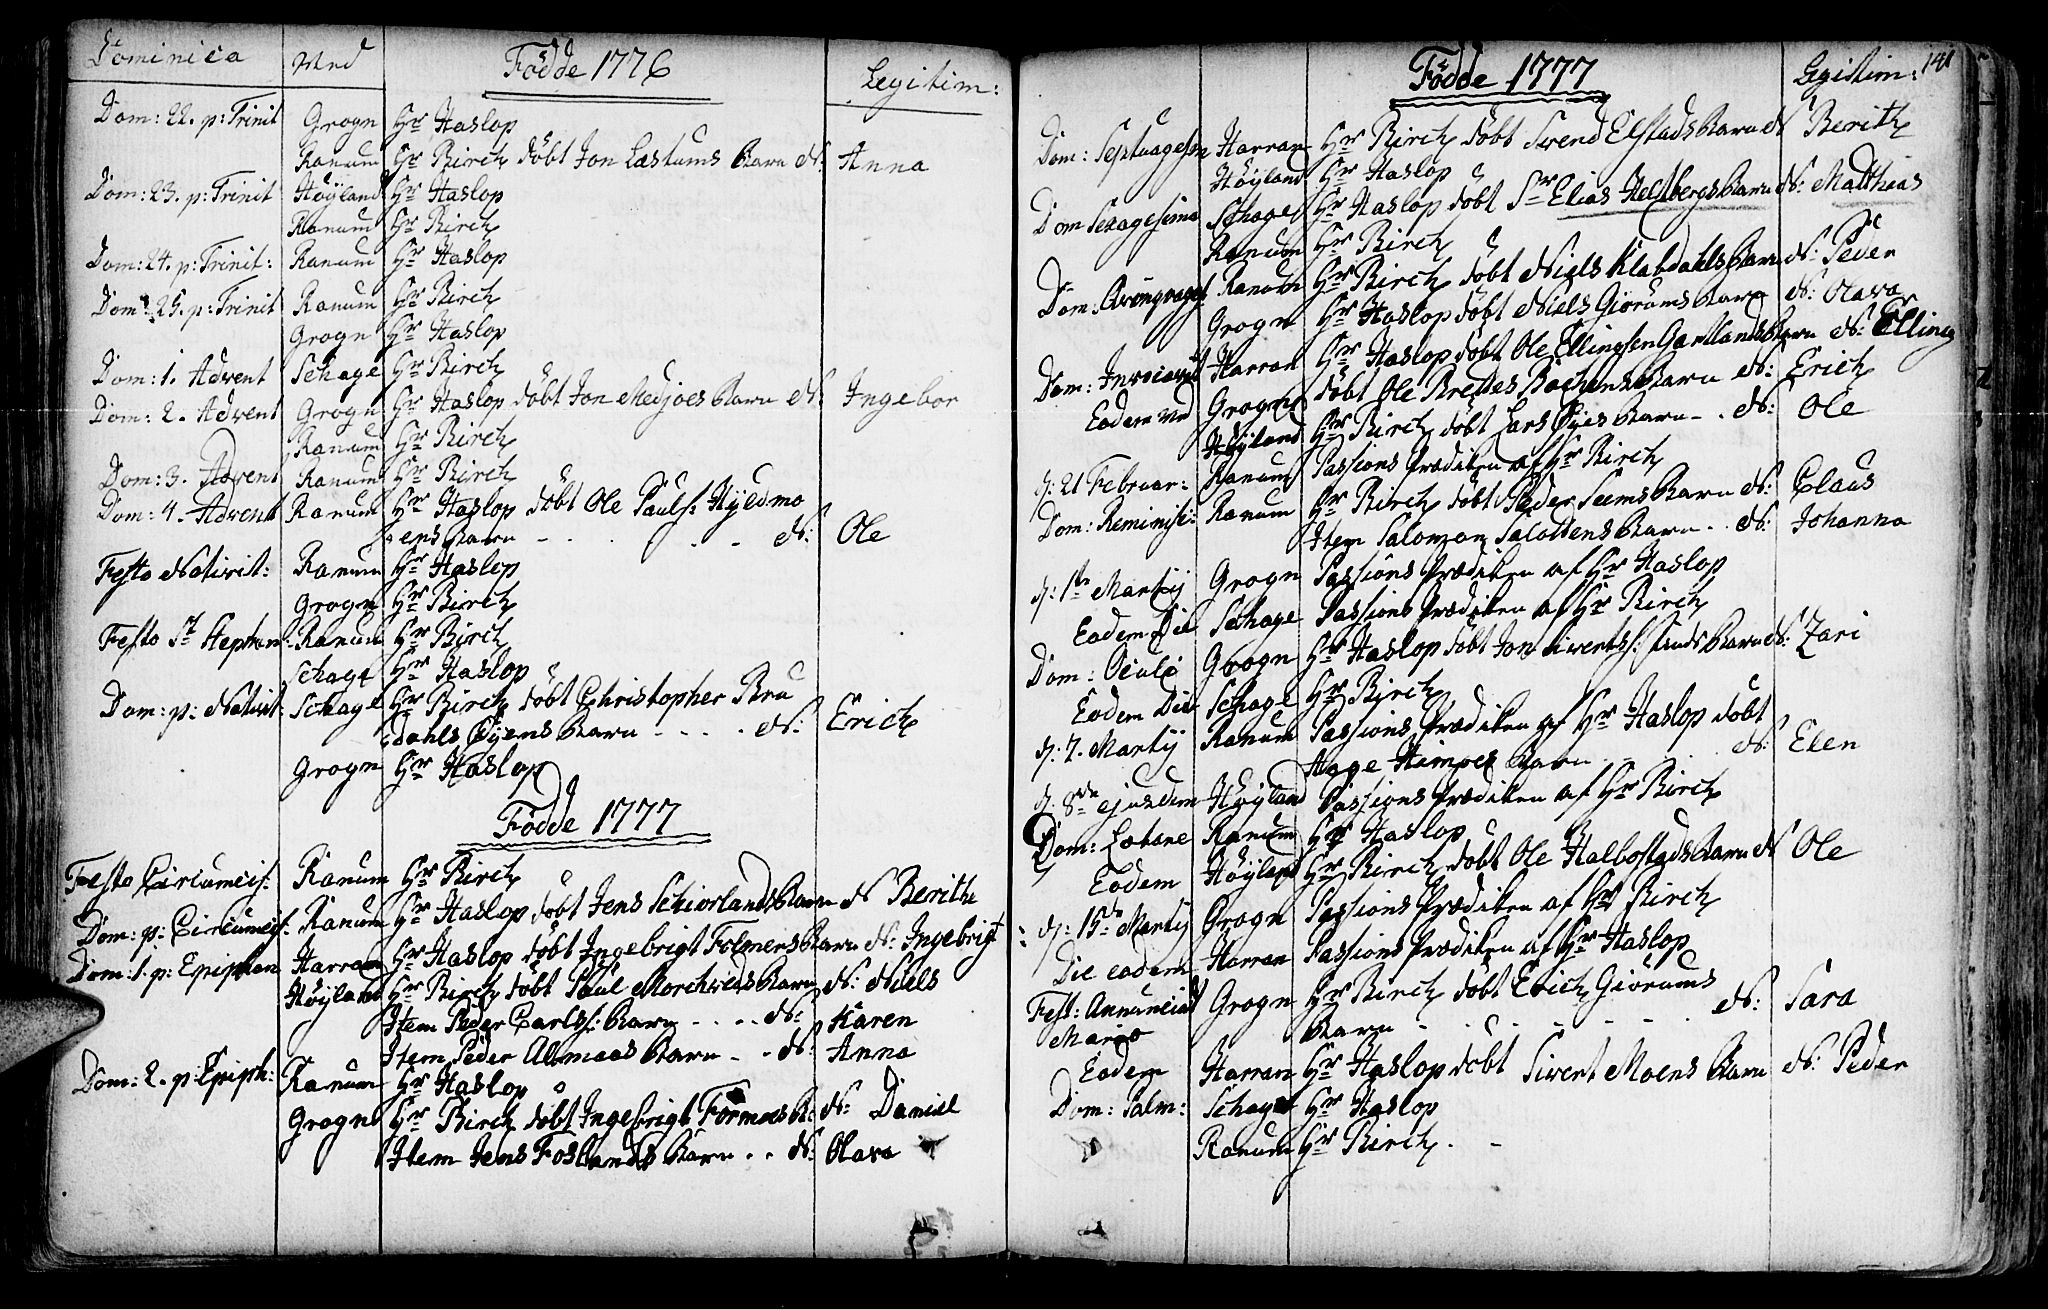 Dominica Ved Födde 1776 Legitim:
Dom: 22. p: Trinit Grogn Hr Haslop
Ranum Hr Birch döbt Jon Læstums Barn N: Anna
Dom: 23. p: Trinit Höyland Hr Haslop
Ranum Hr Birch
Dom: 24. p: Trinit: Ranum Hr Haslop
Dom: 25. p: Trinit Ranum Hr Birch
Grogn Hr Haslop
Dom: 1. Advent Schage Hr Birch
Dom: 2. Advent Grogn Hr Haslop döbt Jon Medjoes Barn N: Ingebor
Ranum Hr Birch
Dom: 3. Advent Ranum Hr Birch
Dom: 4. Advent Ranum Hr Haslop döbt Ole Pauls: Hyldmo
eps Barn - . . . - N: Ole
Festo Nativit: Ranum Hr Haslop
Grogn Hr Birch
Festo St Stephan: Ranum Hr Birch
Schage Hr Haslop
Dom: p: Nativit: Schage Hr Birch döbt Christopher Bru
dahls Øyens Barn - . . . N: Erich
Grogn Hr Haslop
Födde 1777
Festo Circumcis: Ranum Hr Birch
Dom: p: Circumcis: Ranum Hr Haslop döbt Jens Schiorlands Barn N Berithe
Dom: 1. p: Epiphan Harran Hr Haslop döbt Ingebrigt Folmers Barn N: Ingebrigt
Höyland Hr Birch döbt Paul Morchveds Barn N: Niels
Item Peder Carls: Barn - . . . N: Karen
Item Peder Almaas Barn - . N: Anna
Dom: 2. p: Epiph: Ranum Hr Haslop
Grogn Hr Birch döbt Ingebrigt Formoes B: N: Daniel
Item Jens Foslands Barn . . N: Olava
Födde 1777 Legitim: 141
Dom: Septuagesm Harran Hr Birch döbt Svend Elstads Barn N Berith
Höyland Hr Haslop
Dom Sexagesima Schage Hr Haslop döbt Sr Elias Helstbergs Barn N: Matthias
Ranum Hr Birch
Dom: Qvinqvages Ranum Hr Birch döbt Niels Klabdahls Barn N: Peder
Grogn Hr Haslop döbt Niels Giörums Barn N: Olava
Dom: Invocavit Harran Hr Haslop döbt Ole Ellingsen Gartlands Barn N: Elling
Eodem ved Grogn döbt Ole Bredes Bachens Barn N: Erich
Höyland Hr Birch döbt Lars Øyes Barn - . N: Ole
d: 21 Februar: Ranum Passions Prædiken af Hr Birch
Dom: Reminisc: Ranum Hr Birch döbt Peder Seems Barn N: Claus
Item Salomon Salottens Barn . . N: Johanna
d: 1te Martij Grogn Passions Prædiken af Hr Haslop
Eodem Die Schage Passions Prædiken af Hr Birch
Dom: Oculi Grogn Hr Haslop döbt Jon Siverts: Barn N: Zari
Eodem Die Schage Hr Birch
d: 7. Martij Ranum Passions Prædiken af Hr Haslop döbt
Aage Himoes Barn . . . N: Elen
d. 8de ejusdem Höyland Passions Prædiken af Hr Birch
Dom: Lætare Ranum Hr Haslop
Eodem Höyland Hr Birch döbt Ole Halbostads Barn N Ole
d: 15de Martij Grogn Passions Prædiken af Hr Birch
Die eodem Harran Passions Prædiken af Hr Haslop
Fest: Annunciat Grogn Hr Birch döbt Erich Giörums
Mariæ Barn - . . . - - - . N: Sara
Eodem Harran Hr Haslop döbt Sivert Moens Barn N: Peder
Dom: Palm: Schage Hr Haslop
Ranum Hr Birch . -